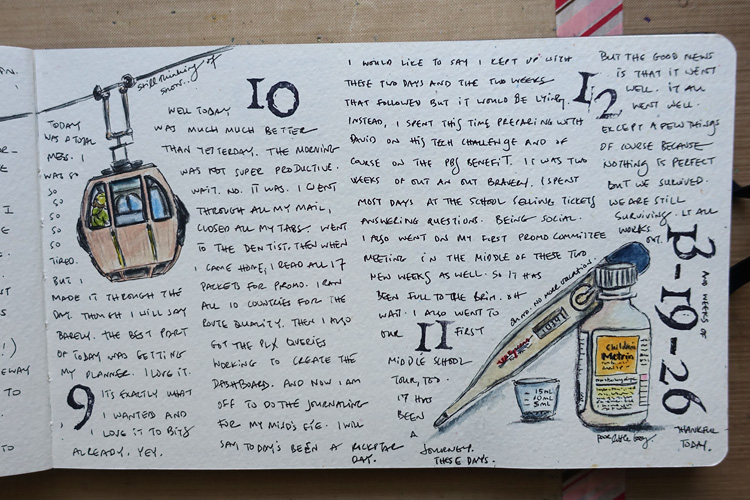 still thinking of
snow...
TODAY
WAS A TOTAL
MESS. I
WAS SO
SO
SO
SO
SO
SO
TIRED.
BUT I
MADE IT THROUGH THE
DAY. THOUGH I WILL SAY
BARELY. THE BEST PART
OF TODAY WAS GETTING
MY PLANNER. I LOVE IT.
9
ITS EXACTLY WHAT
I WANTED AND
I LOVE IT TO BITS
ALREADY. YEY.
10
WELL TODAY
WAS MUCH MUCH BETTER
THAN YESTERDAY. THE MORNING
WAS NOT SUPER PRODUCTIVE.
WAIT. NO. IT WAS. I WENT
THROUGH ALL MY MAIL,
CLOSED ALL MY TABS. WENT
TO THE DENTIST. THEN WHEN
I CAME HOME, I READ ALL 17
PACKETS FOR PROMO. I RAN
ALL 10 COUNTRIES FOR THE
ROUTE QUALITY. THEN I ALSO
GOT THE PLX QUERIES
WORKING TO CREATE THE
DASHBOARD. AND NOW I AM
OFF TO DO THE JOURNALING
FOR MY MIND'S EYE. I WILL
SAY, TODAY'S BEEN A ROCKSTAR
DAY.
I WOULD LIKE TO SAY I KEPT UP WITH
THESE TWO DAYS AND THE TWO WEEKS
THAT FOLLOWED BUT IT WOULD BE LYING.
INSTEAD, I SPENT THIS TIME PREPARING WITH
DAVID ON HIS TECH CHALLENGE AND OF
COURSE ON THE PBJ BENEFIT. IT WAS TWO
WEEKS OF OUT AN OUT BRAVERY. I SPENT
MOST DAYS AT THE SCHOOL SELLING TICKETS
ANSWERING QUESTIONS. BEING SOCIAL.
I ALSO WENT ON MY FIRST PROMO COMMITTEE
MEETING IN THE MIDDLE OF THESE TWO
NEW WEEKS AS WELL. SO IT HAS
BEEN FULL TO THE BRIM. OH
WAIT. I ALSO WENT TO
OUR
11
FIRST
MIDDLE SCHOOL
TOUR, TOO.
IT HAS
BEEN
A
JOURNEY.
THESE DAYS.
12
BUT THE GOOD NEWS
IS THAT IT WENT
WELL. IT ALL
WENT WELL.
EXCEPT A FEW THINGS
OF COURSE BECAUSE
NOTHING IS PERFECT
BUT WE SURVIVED.
WE ARE STILL
SURVIVING. IT ALL
WORKS
OUT.
13-19-26
AND WEEKS OF
oh no. no more vacation.
Children's
Metrin
15mL
10mL
5mL
poor little boy
THANKFUL
TODAY.